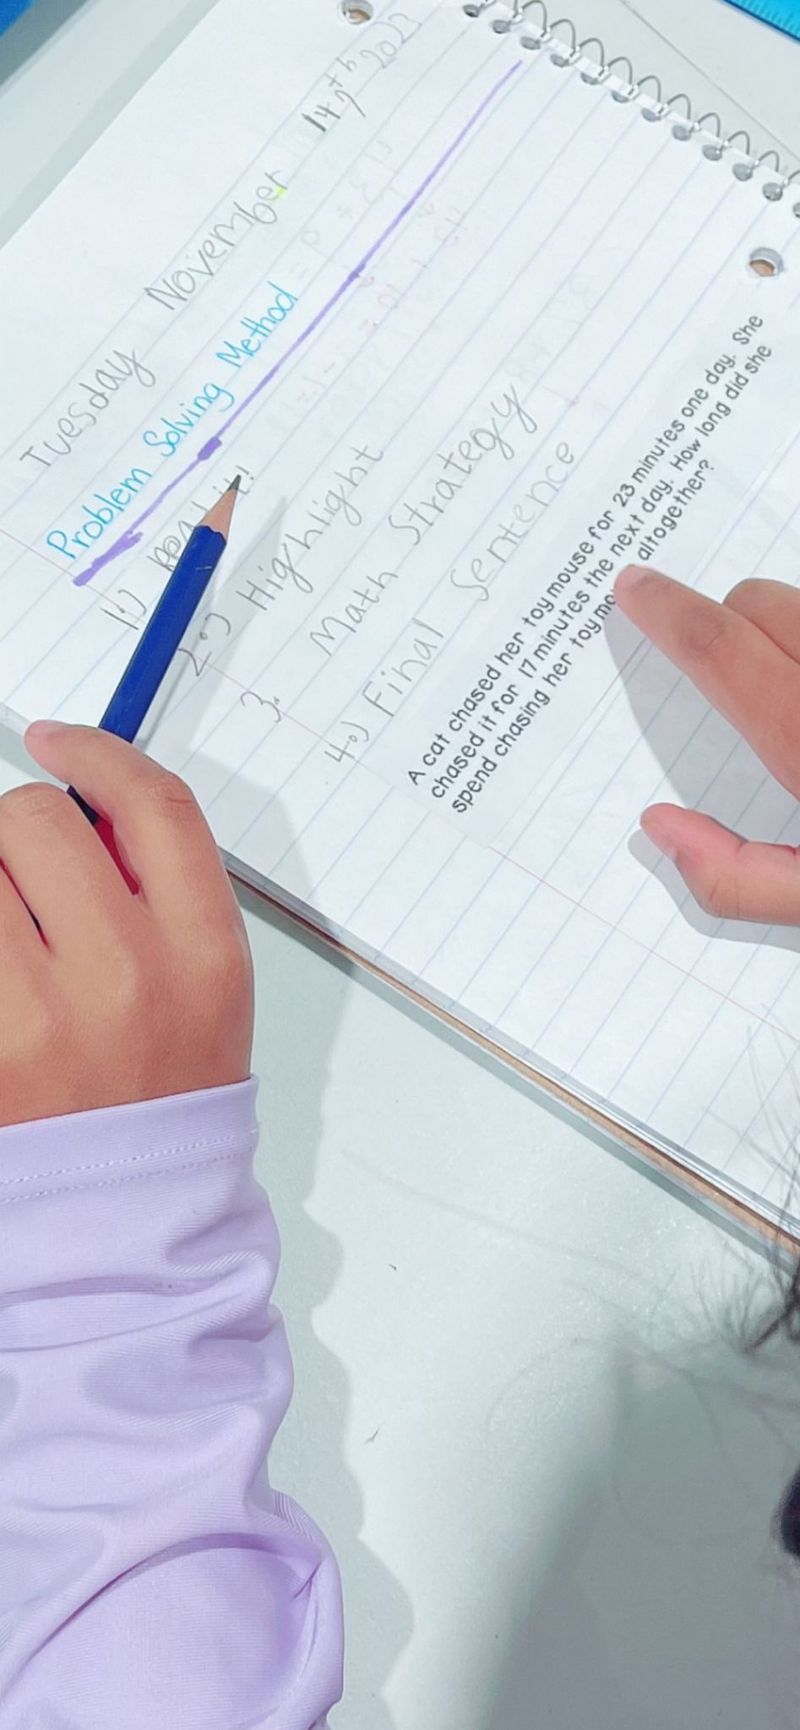 Tuesday November 14th 2023
Problem Solving Method
1.) Read it!
2.) Highlight
3. Math Strategy
4.) Final Sentence
A cat chased her toy mouse for 23 minutes one day. She
chased it for 17 minutes the next day. How long did she
spend chasing her toy mo altogether?